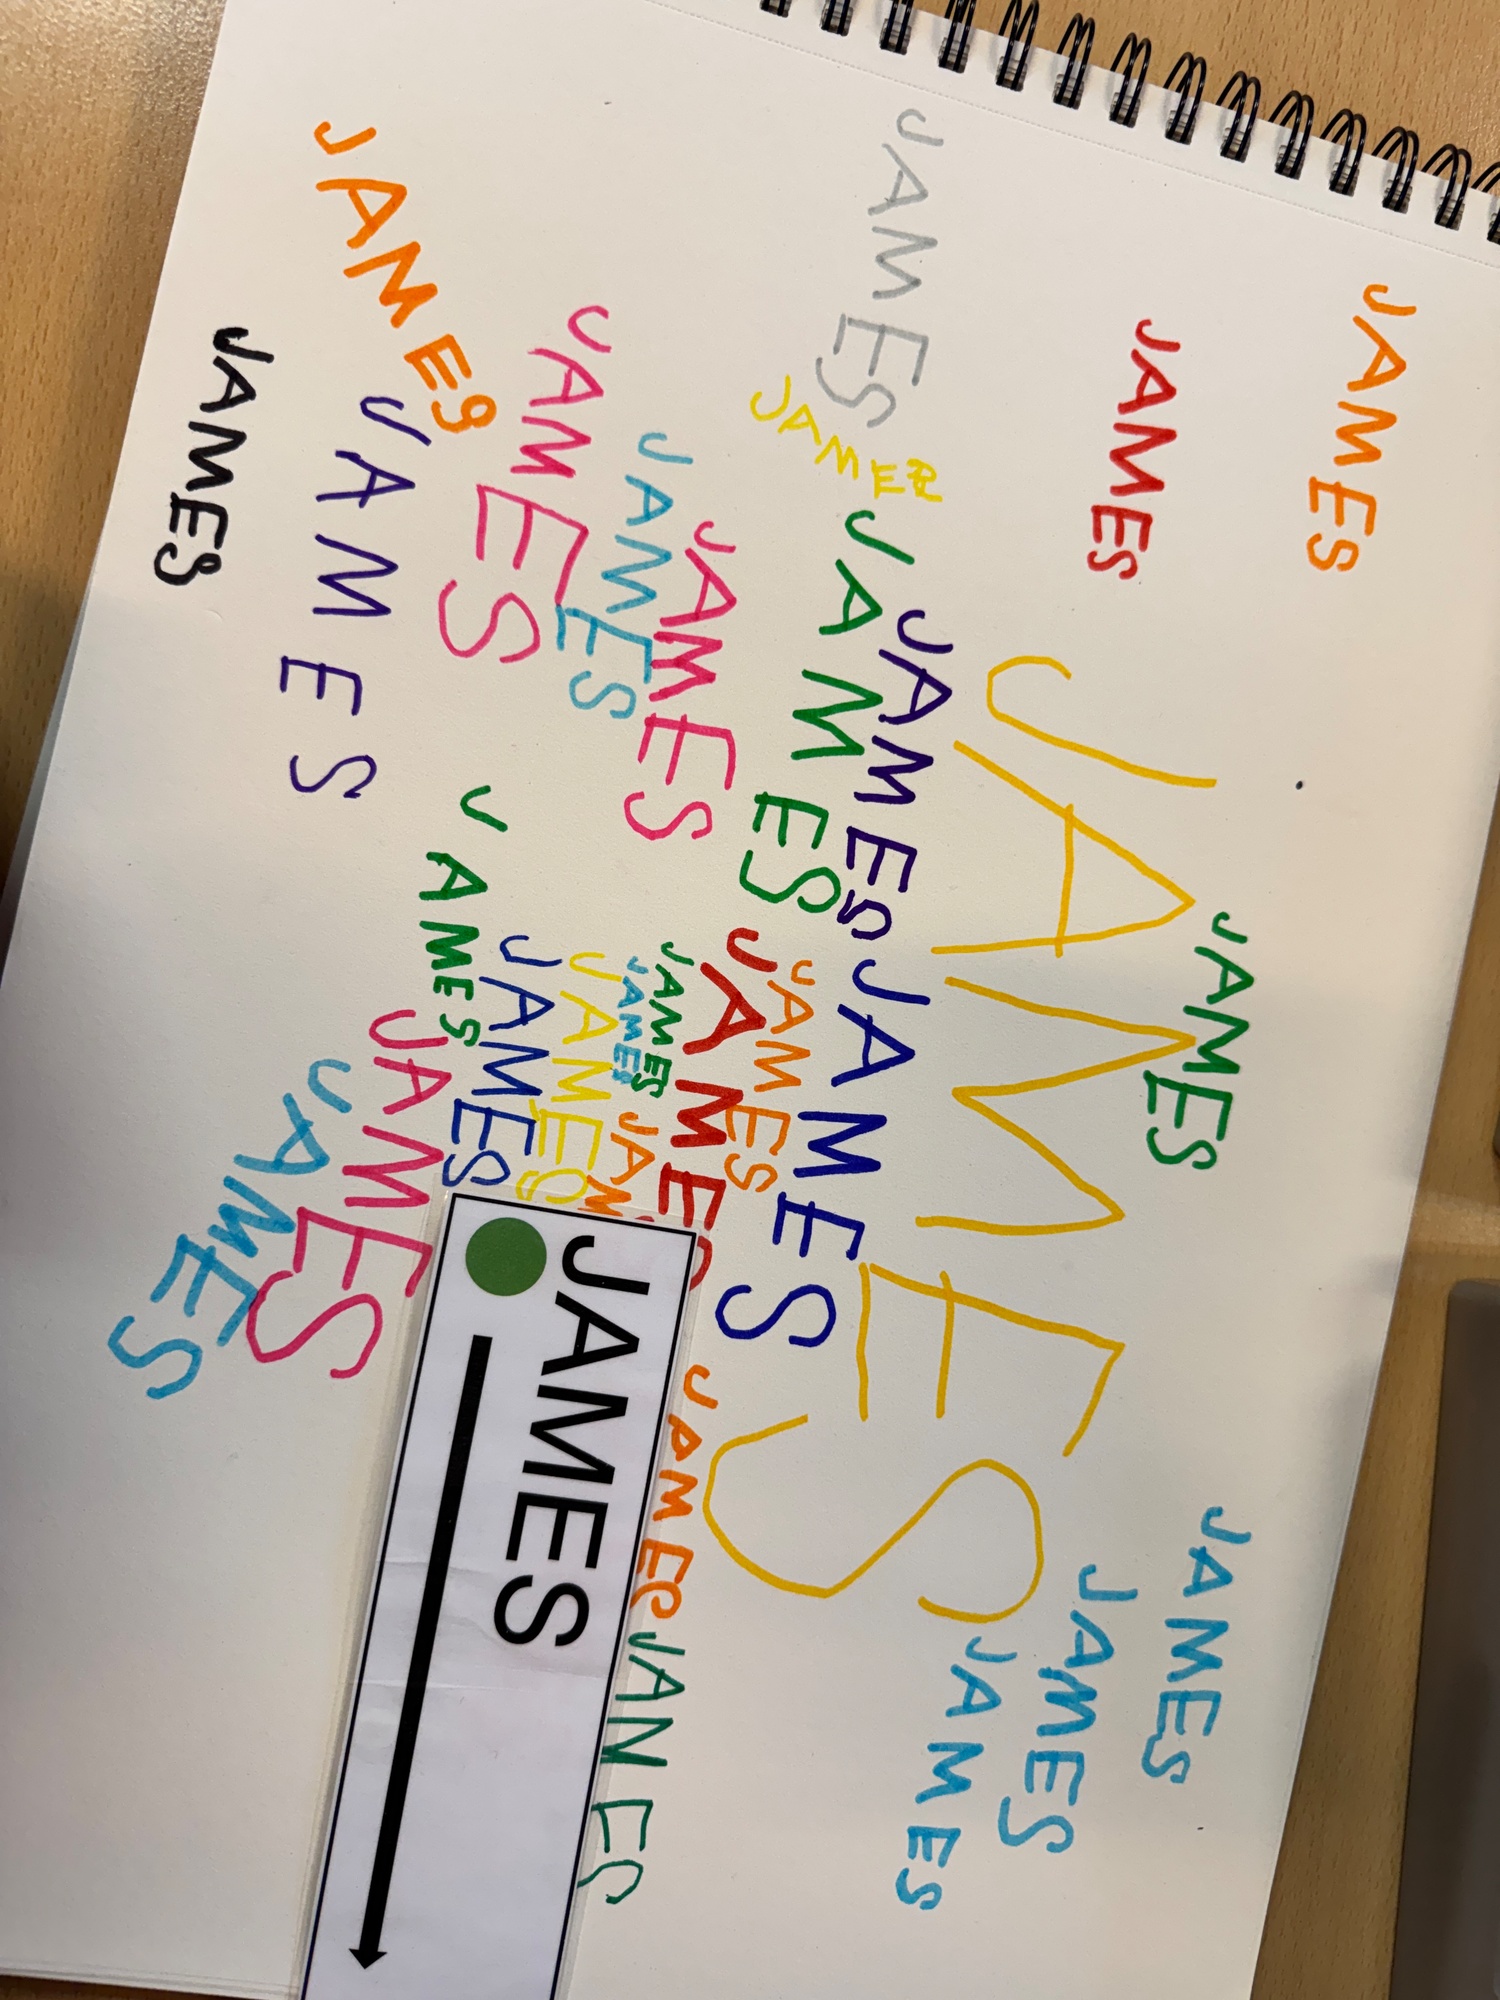 JAMES
JAMES
JAMES
JAMES
JAMES
JAMES
JAMES
JAMES
JAMER
JAMES
JAMES
JAMES
JAMES
JAMES
JAMES
JAMES
JAM
JAMES
JAMES
JAMES
JANES
JAMES
JAMES
JAMES
JAMES
JAMES
JAMES
JAMES
JAMES
JAMES
JAMES